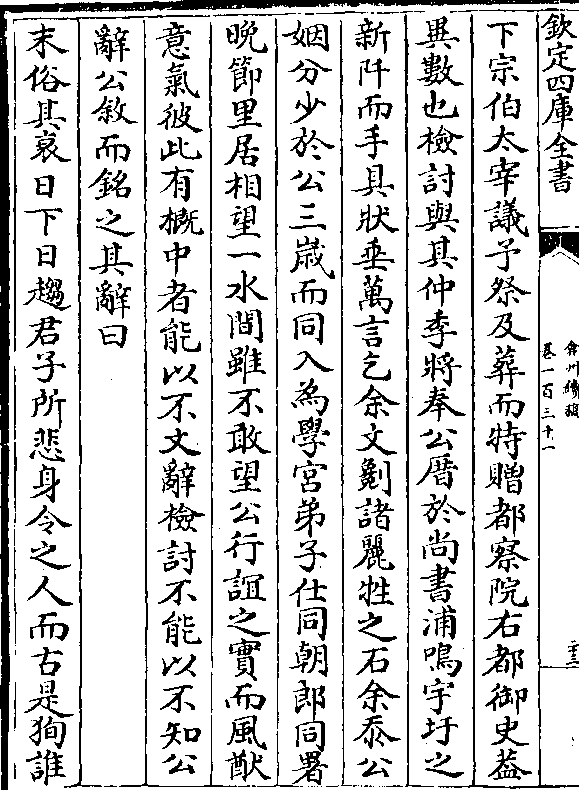 欽定四庫全書
弇州續稿
卷一百三十一
二十三
下宗伯太宰議予祭及葬而特贈都察院右都御史葢
異數也檢討與其仲季將奉公厝於尚書浦鳴字圩之
新阡而手具狀垂萬言乞余文劖諸麗牲之石余忝公
姻分少於公三歲而同入為學宮弟子仕同朝郎同署
晚節里居相望一水間雖不敢望公行誼之實而風猷
意氣彼此有概中者能以不文辭檢討不能以不知公
辭公敘而銘之其辭曰
末俗其裒日下日趨君子所悲身令之人而古是狥誰